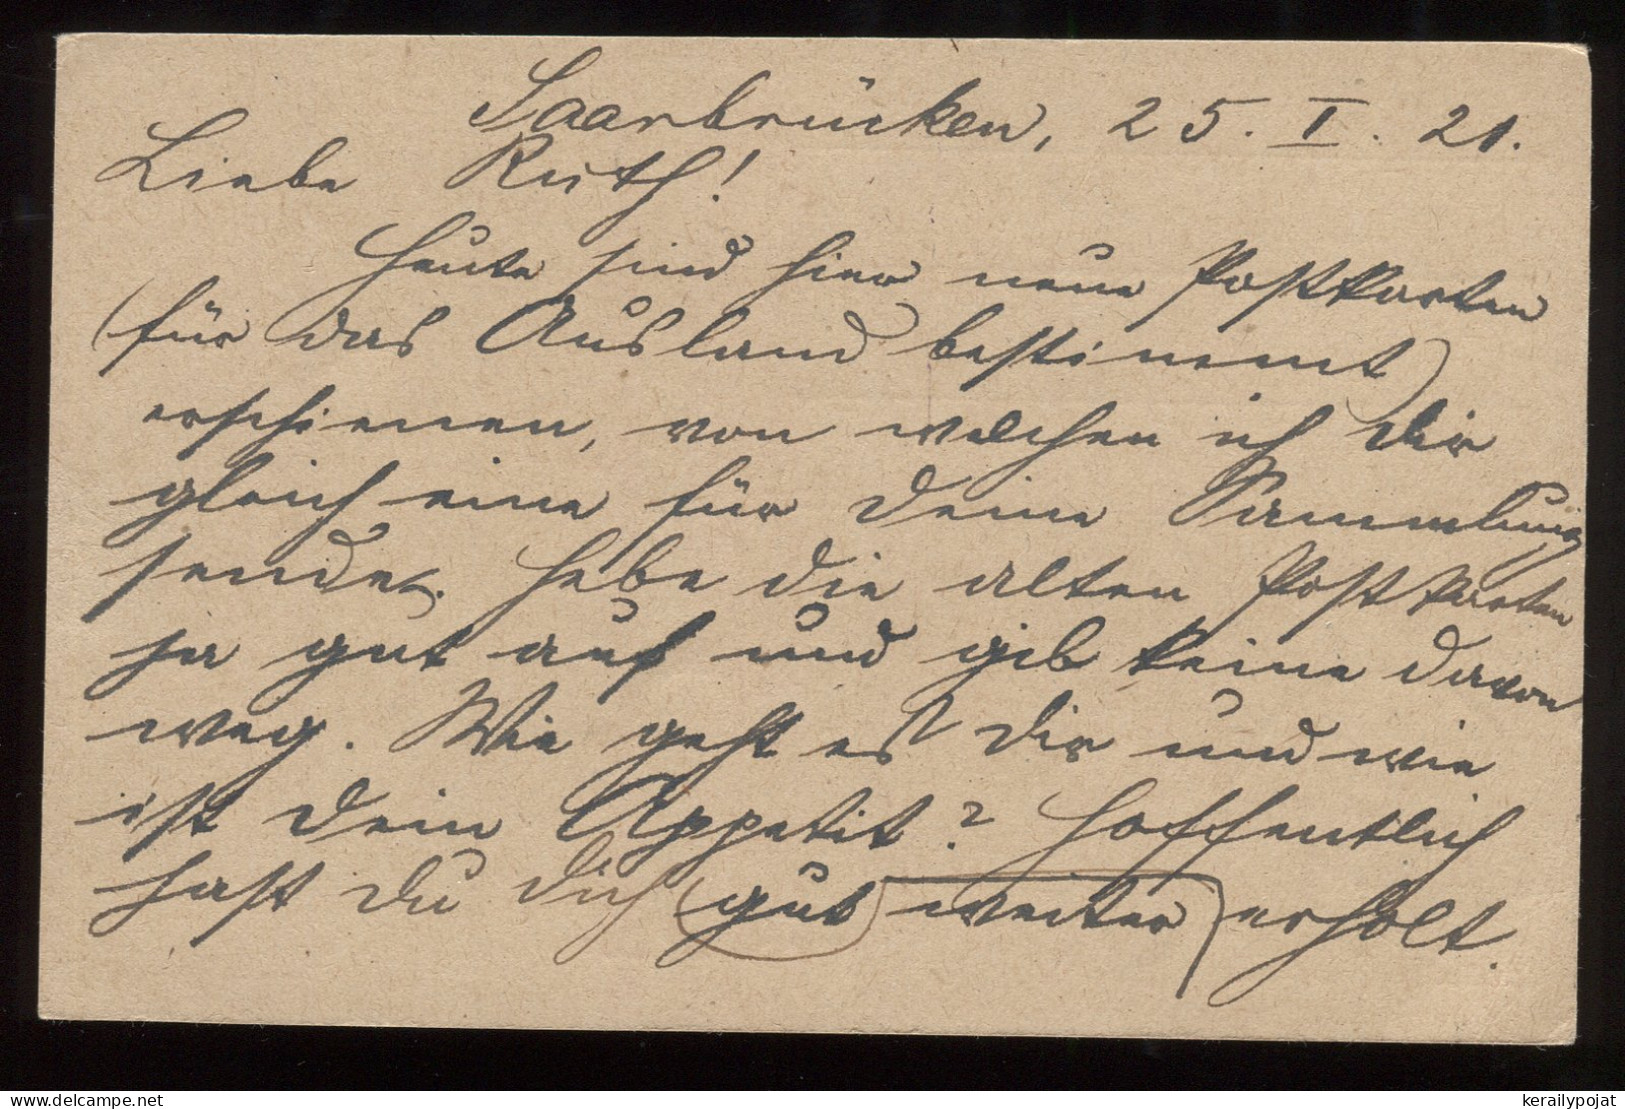 Saarbrücken, 25. I. 21.
Liebe Ruth!
Heute sind hier neue Postkarten
(für das Ausland bestimmt)
erschienen, von welchen ich dir
gleich eine für deine Sammlung
sende. Hebe die alten Postkarten
ja gut auf und gib keine davon
weg. Wie geht es dir und wie
ist dein Appetit? Hoffentlich
hast du dich gut weiter erholt.
Delcampe.net
kerailypojat